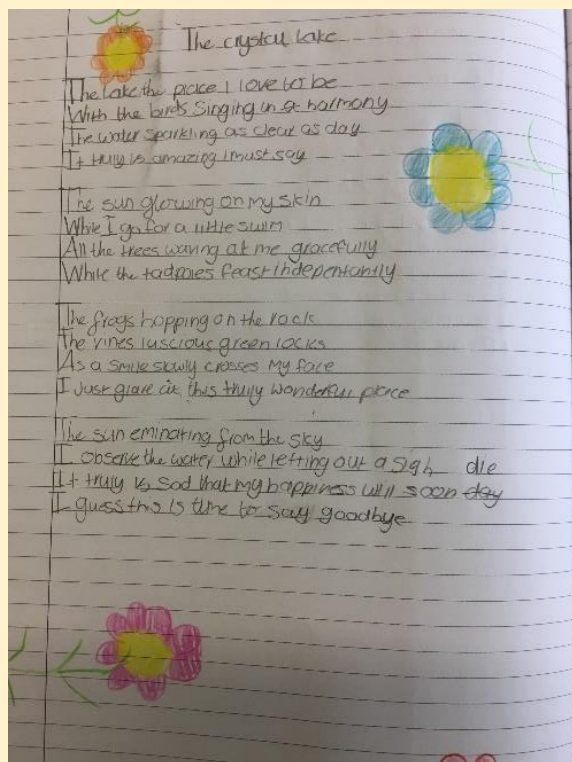 The crystal lake
The lake the place I love to be
With the birds singing in harmony
The water sparkling as clear as day
It truly is amazing I must say
The sun glowing on my skin
While I go for a little swim
All the trees waving at me gracefully
While the tadpoles feast indepentantly
The frogs hopping on the rock
The vines luscious green locks
As a smile slowly crosses my face
I just glare at this trully wonderful place
The sun eminating from the sky
I observe the water while letting out a sigh
It truly is sad that my happiness will soon die
I guess this is time to say goodbye